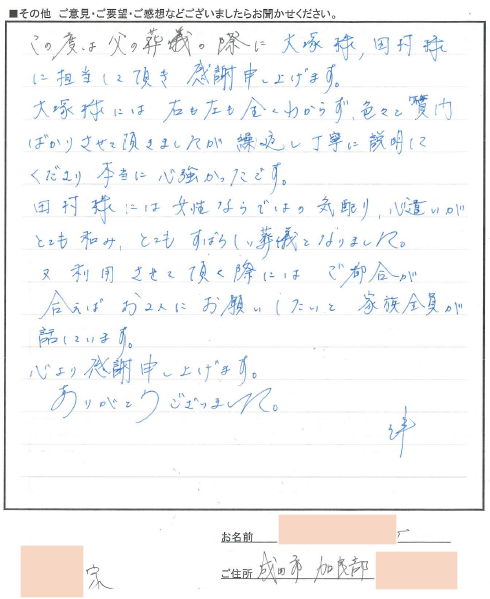 ■その他 ご意見・ご要望・ご感想などございましたらお聞かせください。
この度は父の葬儀の際に 大塚様,田村様
に担当して頂き 感謝申し上げます。
大塚様には 右も左も全くわからず、色々と質内
ばかりさせて頂きましたが 繰返し丁寧に説明して
くださり 本当に心強かったです。
田村様には女性ならではの気配り,心遣いが
とても和み、とてもすばらしい葬儀となりました。
又利用させて頂く際には ご都合が
合えば お2人にお願いしたいと 家族全員が
話しています。
心より感謝申し上げます。
ありがとうございました。
お名前
家
ご住所 成田市 加良部